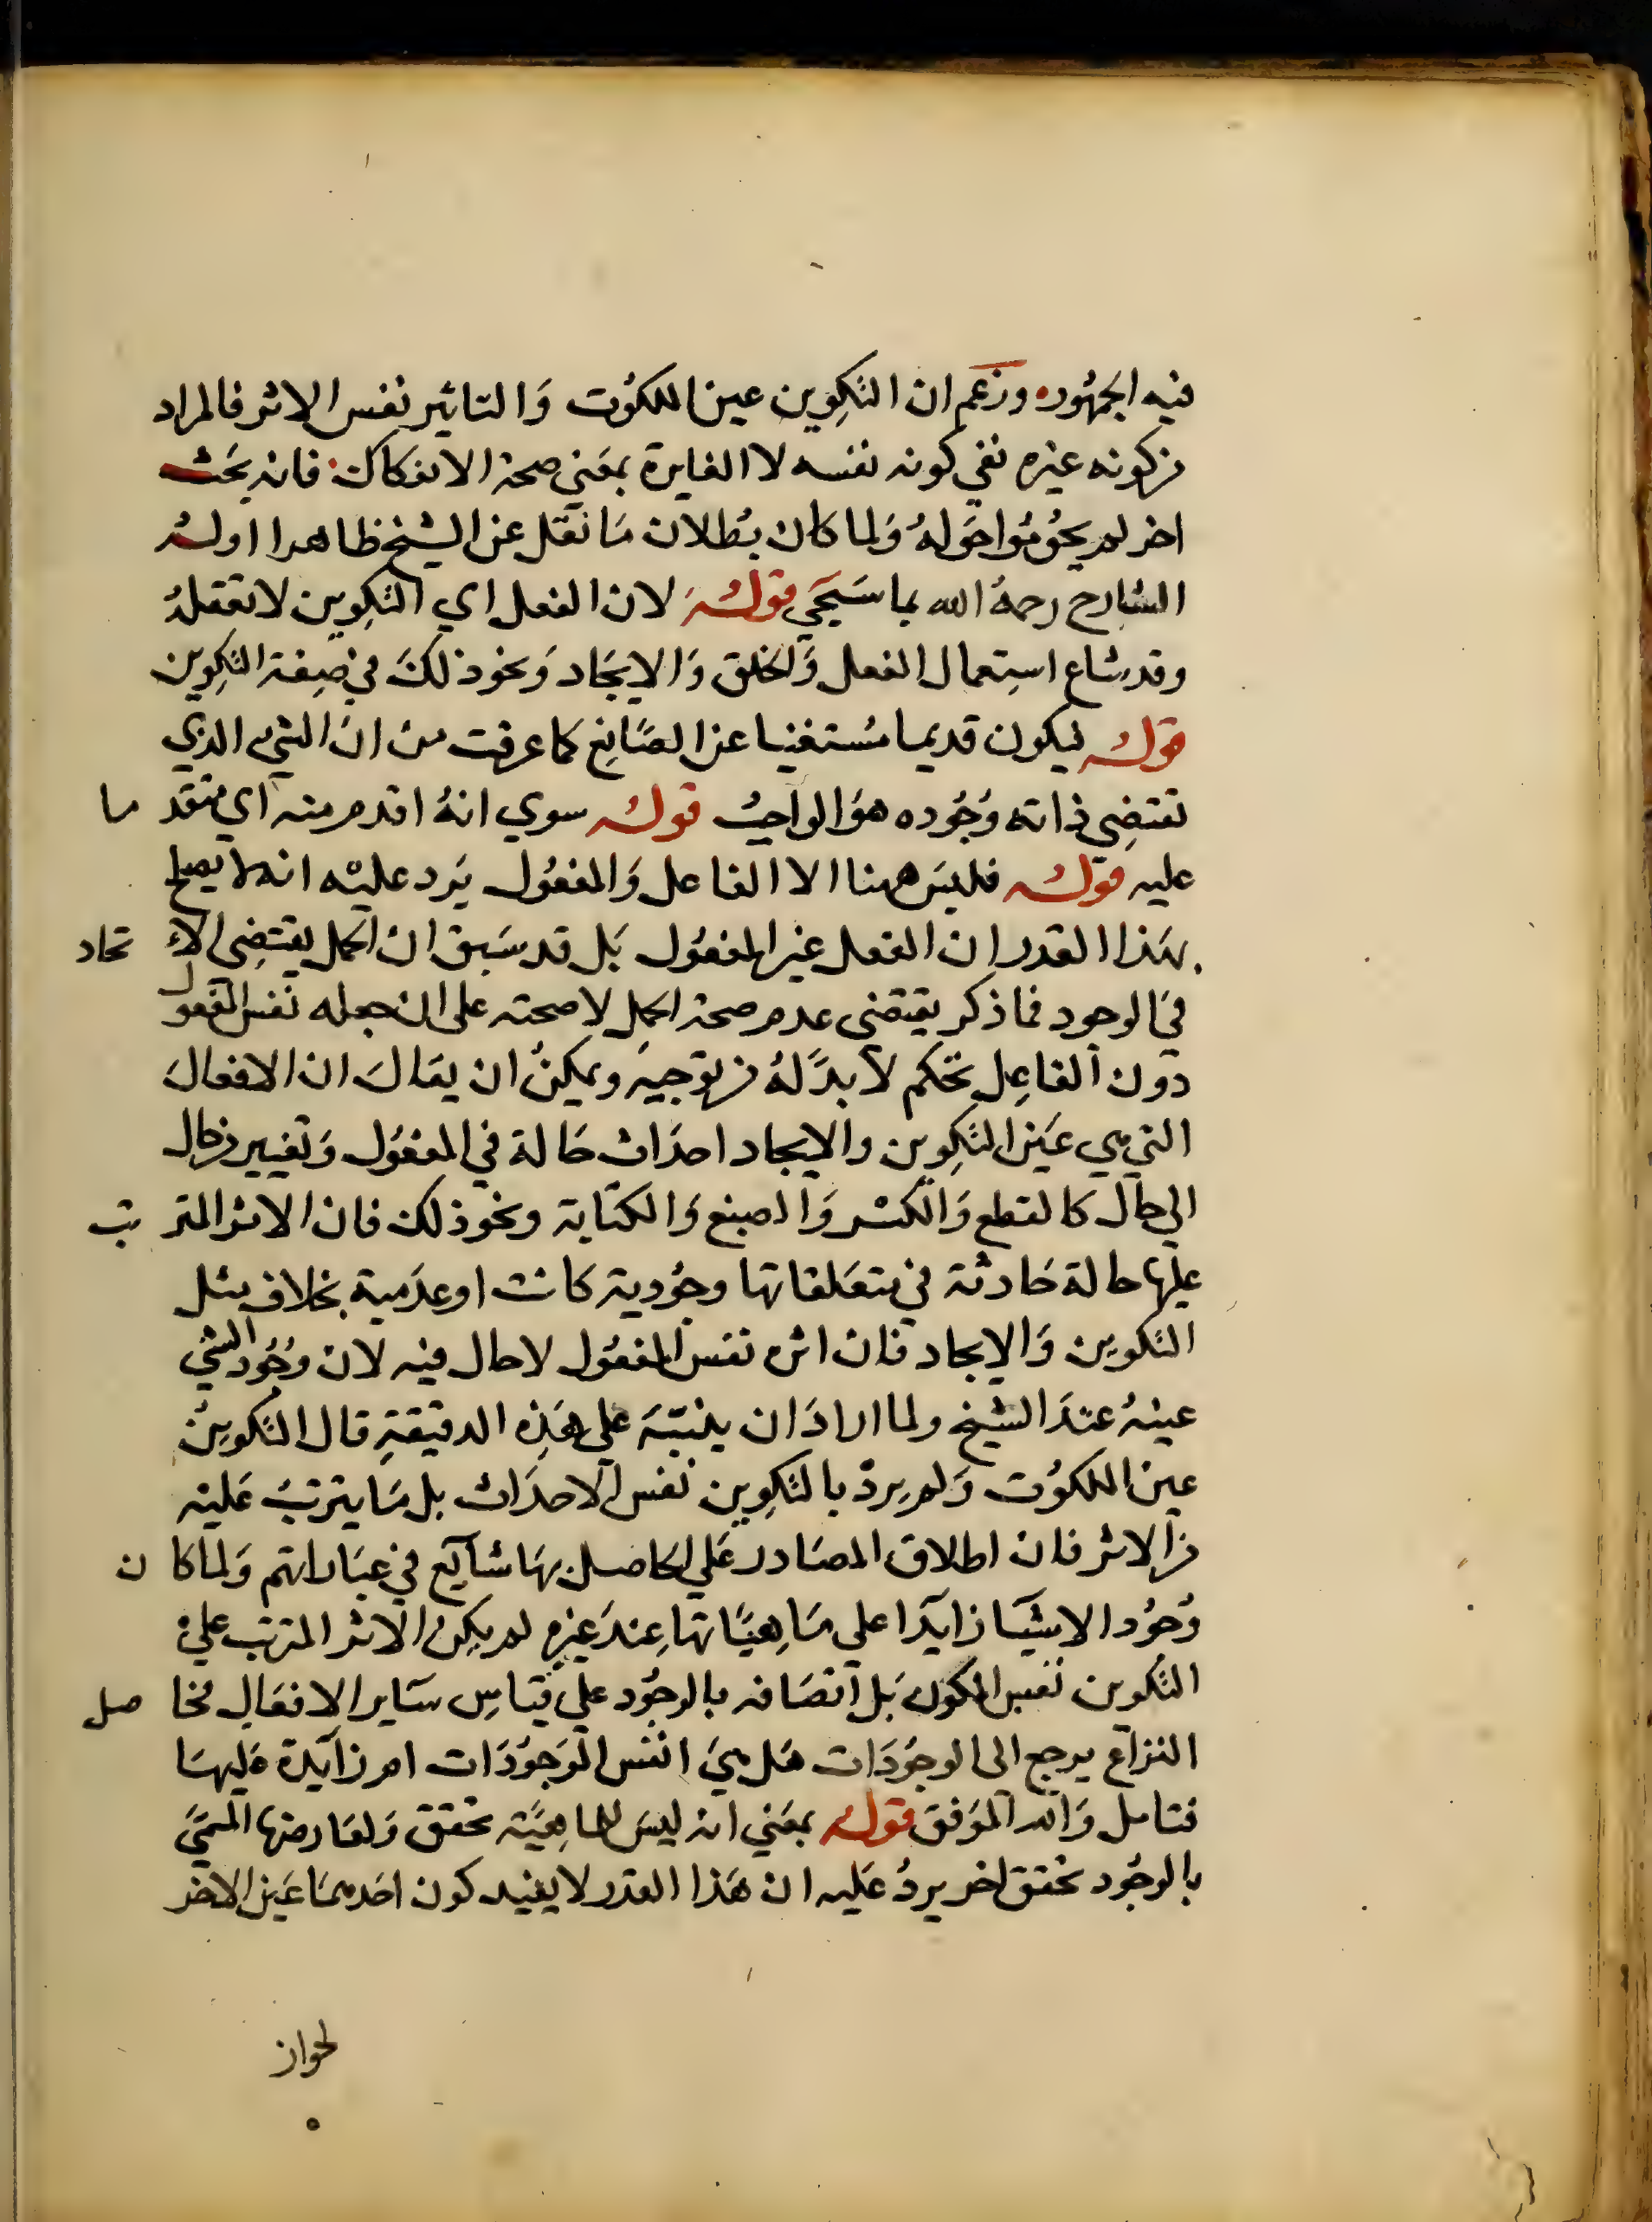 فيه الجمهور وزعم ان التكوين عين المكون والتاثير نفس الاثر فالمراد
من كونه غيره نفي كونه نفسه لا المغايرة بمعني صحة الانفكاك فانه بحث
اخر لم يحوموا حوله ولما كان بطلان ما نقل عن الشيخ ظاهرا اوله
الشارح رحمه الله بما سيجي قوله لان الفعل اي التكوين لا تعقله
وقد شاع استعمال الفعل والخلق والايجاد ونحو ذلك في صفة التكوين
قوله ليكون قديما مستغنيا عن الصانع كما عرفت من ان الشي الذي
تقتضي ذاته وجوده هو الواجب قوله سوي انه اقدم منه اي متقد ما
عليه قوله فليس ههنا الا الفاعل والمفعول يرد عليه انه لا يصلح
بهذا القدر ان الفعل غير المفعول بل قد سبق ان الحمل يقتضي الا تحاد
في الوجود فما ذكر يقتضي عدم صحة الحمل لا صحته على ان جعله نفس المفعول
دون الفاعل تحكم لا بد له من توجيه ويمكن ان يقال ان الافعال
التي هي غير التكوين والايجاد احداث حالة في المفعول وتغيير من حال
الي حال كالقطع والكسر والصبغ والكتابة ونحو ذلك فان الاثر المتر تب
عليها حالة حادثة في متعلقاتها وجودية كانت او عدمية بخلاف مثل
التكوين والايجاد فان اثره نفس المفعول لا حال فيه لان وجود الشي
عينه عند الشيخ ولما اراد ان ينبه علي هذه الدقيقة قال التكوين
عين المكون ولم يرد بالتكوين نفس الاحداث بل ما يترتب عليه
من الاثر فان اطلاق المصادر علي الحاصل بها شايع في عباراتهم ولما كا ن
وجود الاشيا زايدا علي ماهياتها عند غيره لم يكن الاثر المترتب علي
التكوين نفس المكون بل اتصافه بالوجود علي قياس ساير الافعال فحا صل
النزاع يرجع الى الوجودات هل هي انفس الموجودات ام زايدة عليها
فتامل والله الموفق قوله بمعني انه ليس للماهية تحقق ولعارضها المسمي
بالوجود تحقق اخر يرد عليه ان هذا القدر لا يفيد كون احدهما عين الاخر
لجواز